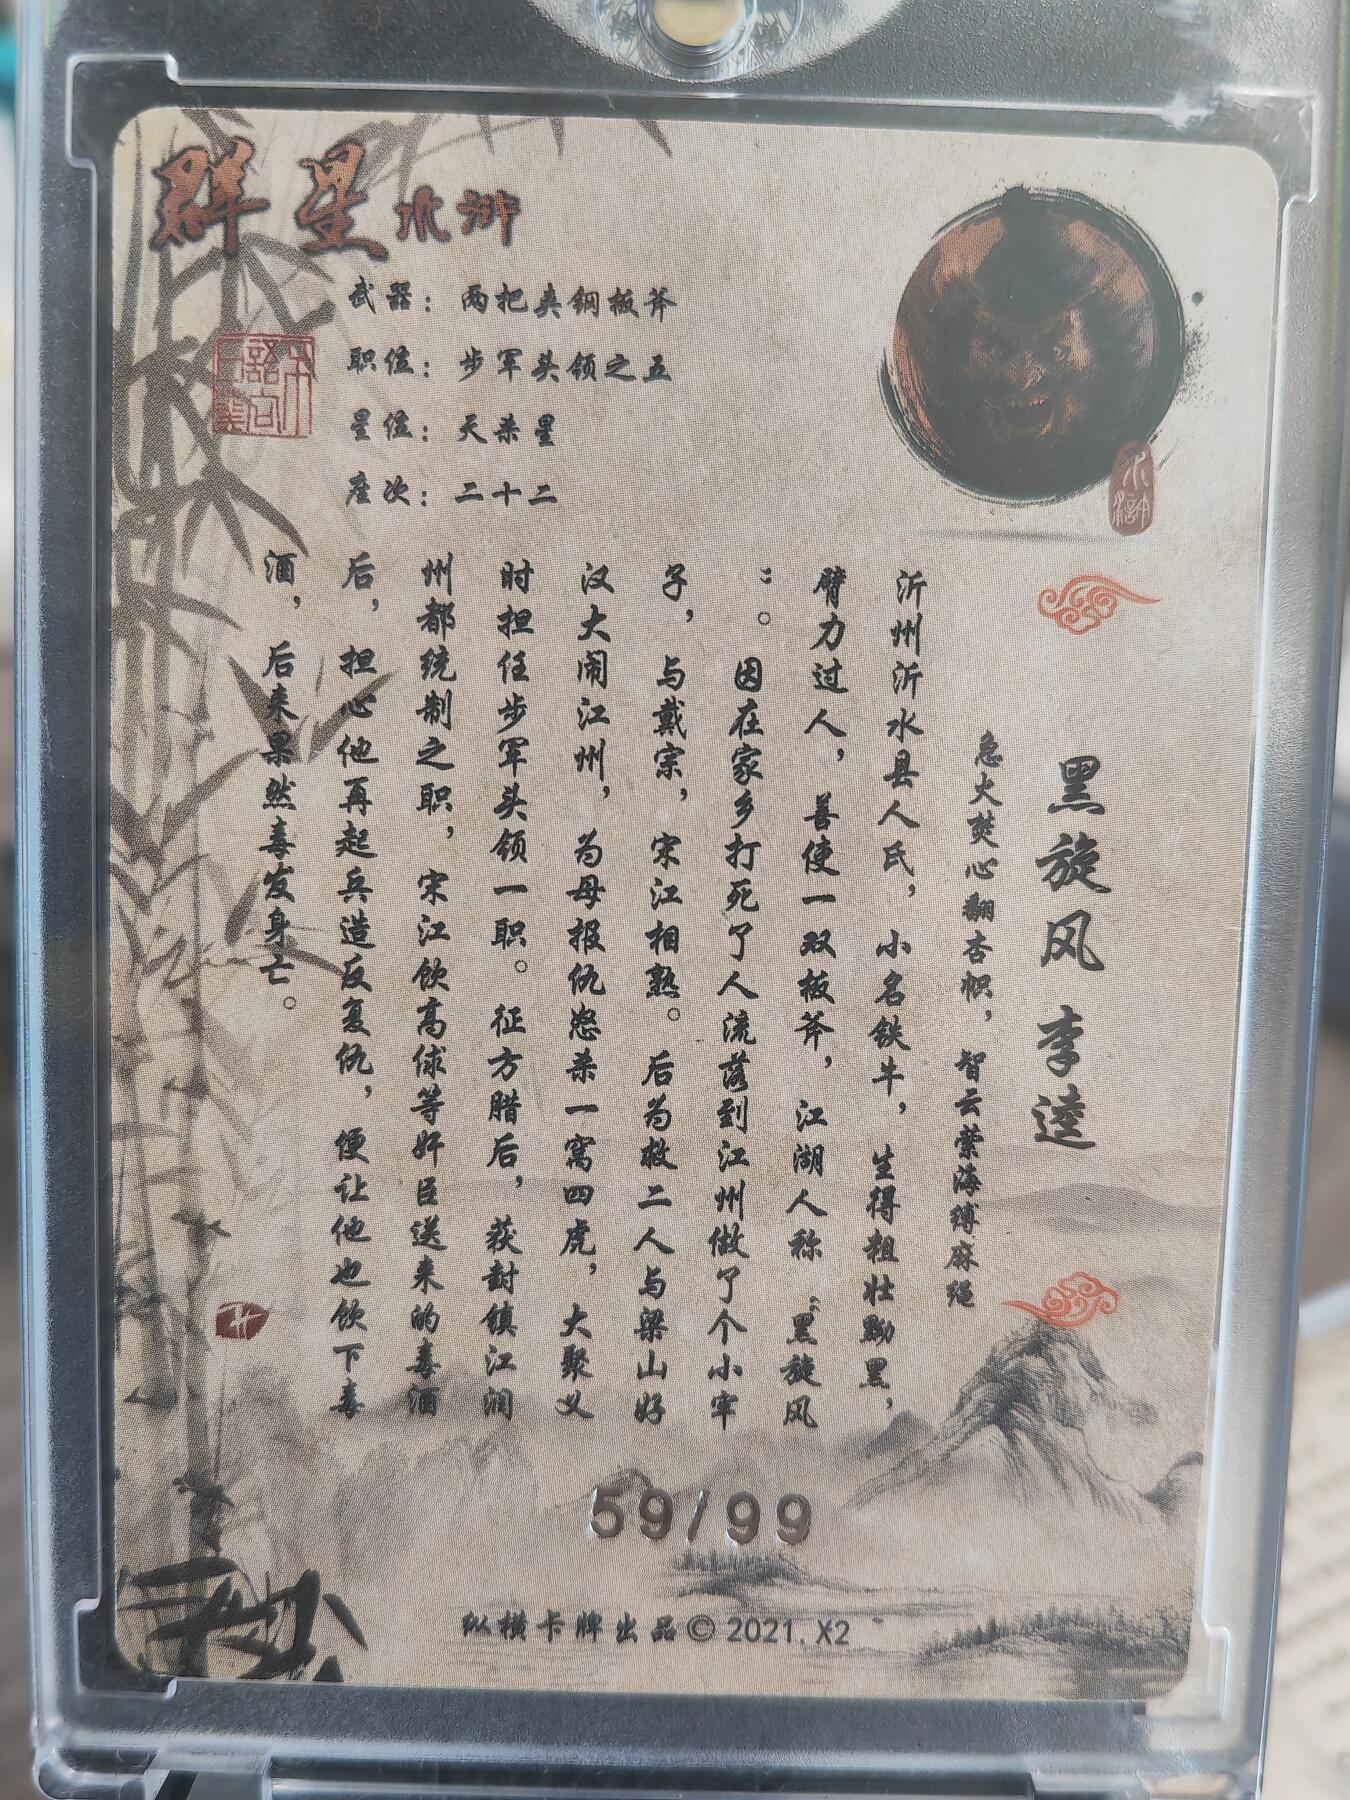 群星水浒
武器：两把夹钢板斧
职位：步军头领之五
星位：天杀星
座次：二十二
水浒
黑旋风 李逵
急火焚心翻杏帜，智云萦海缚麻绳
沂州沂水县人氏，小名铁牛，生得粗壮黝黑，
臂力过人，善使一双板斧，江湖人称“黑旋风
”。因在家乡打死了人流落到江州做了个小牢
子，与戴宗，宋江相熟。后为救二人与梁山好
汉大闹江州，为母报仇怒杀一窝四虎，大聚义
时担任步军头领一职。征方腊后，获封镇江润
州都统制之职，宋江饮高俅等奸臣送来的毒酒
后，担心他再起兵造反复仇，便让他也饮下毒
酒，后来果然毒发身亡。
59/99
纵横卡牌出品© 2021. X2